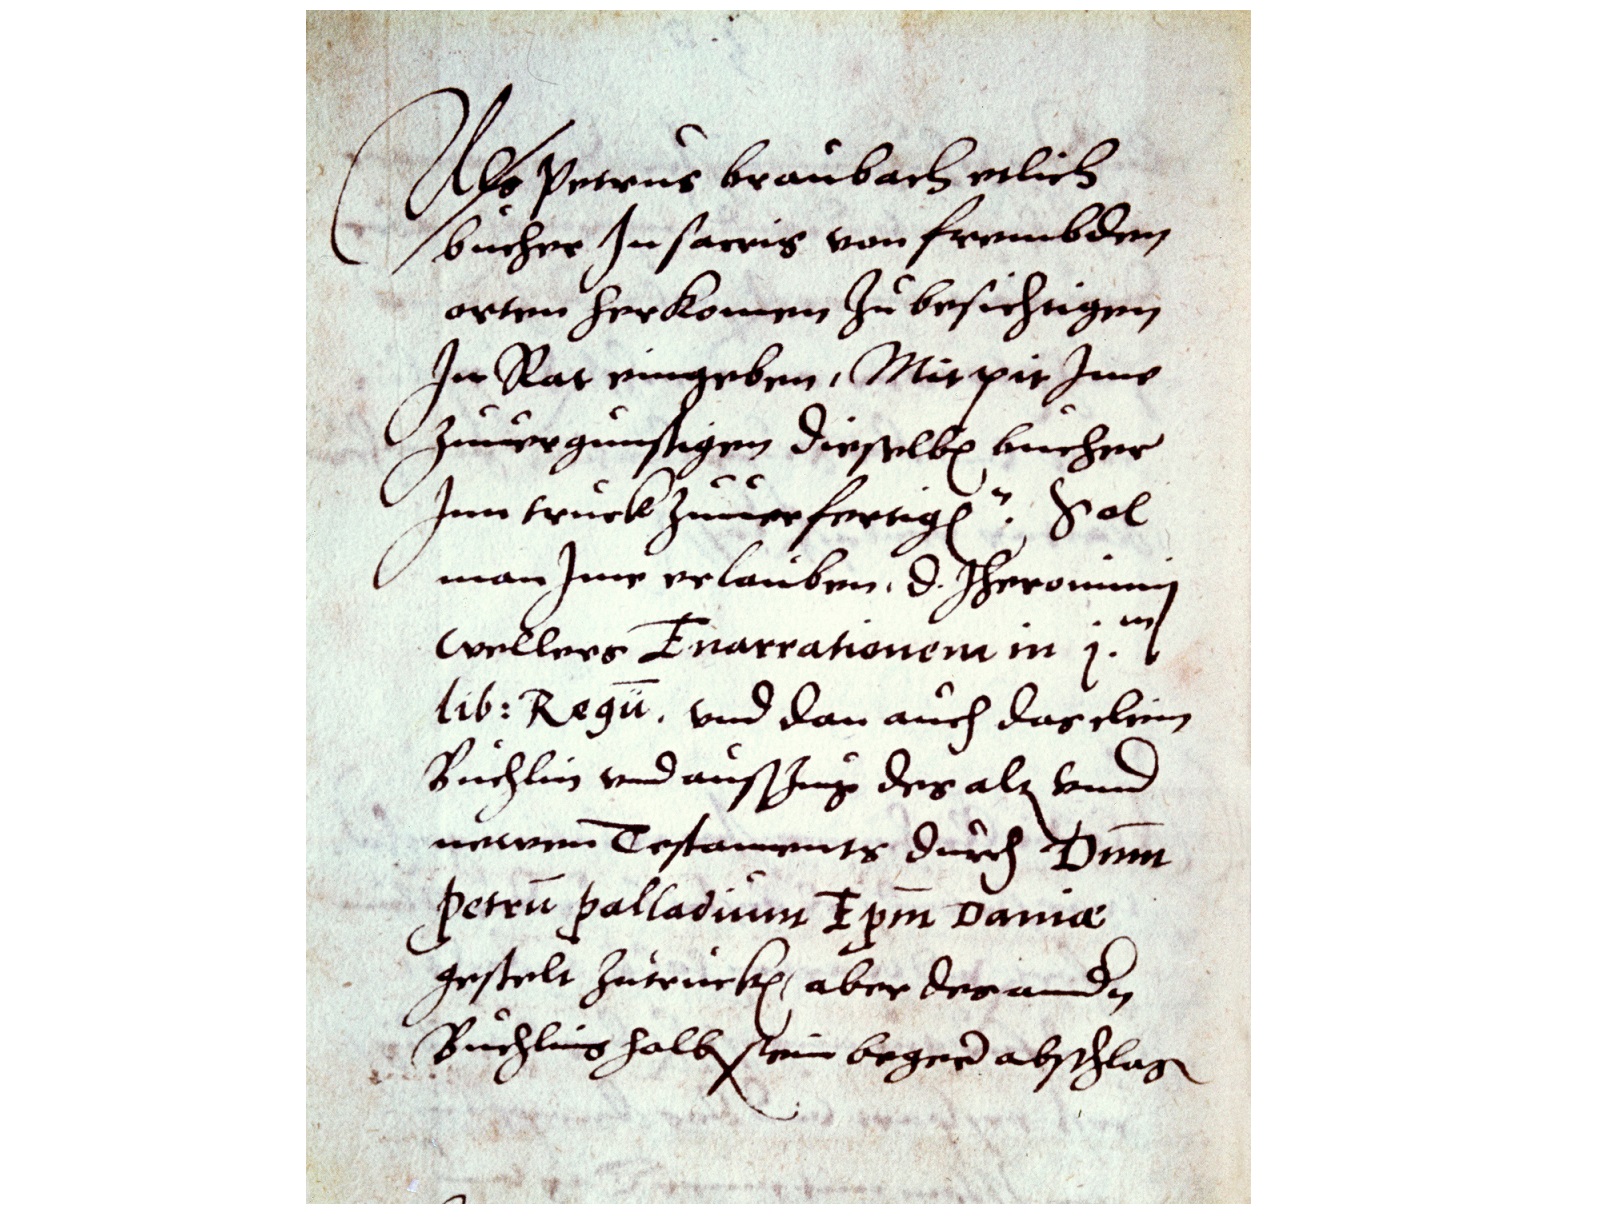 Als Petrus braubach etlich
bucher In sacris von frembden
orten herkomen zu besichtigen
In Rat eingeben, Mit pit Ime
zuuergunstigen dieselb bucher
Inn truck zuuerfertig. Sol
man Ime erlauben, d. Iheronimij
wellers Enarrationem in j.m
lib: Regū. vnd dan auch das clein
Buchlin vnd auszug des alt vnnd
newen Testaments durch Dnm̄
petrū palladium Epm̄ Daniæ
gestelt zutruck, aber des andern
Buchlins halb sein beger abschlag